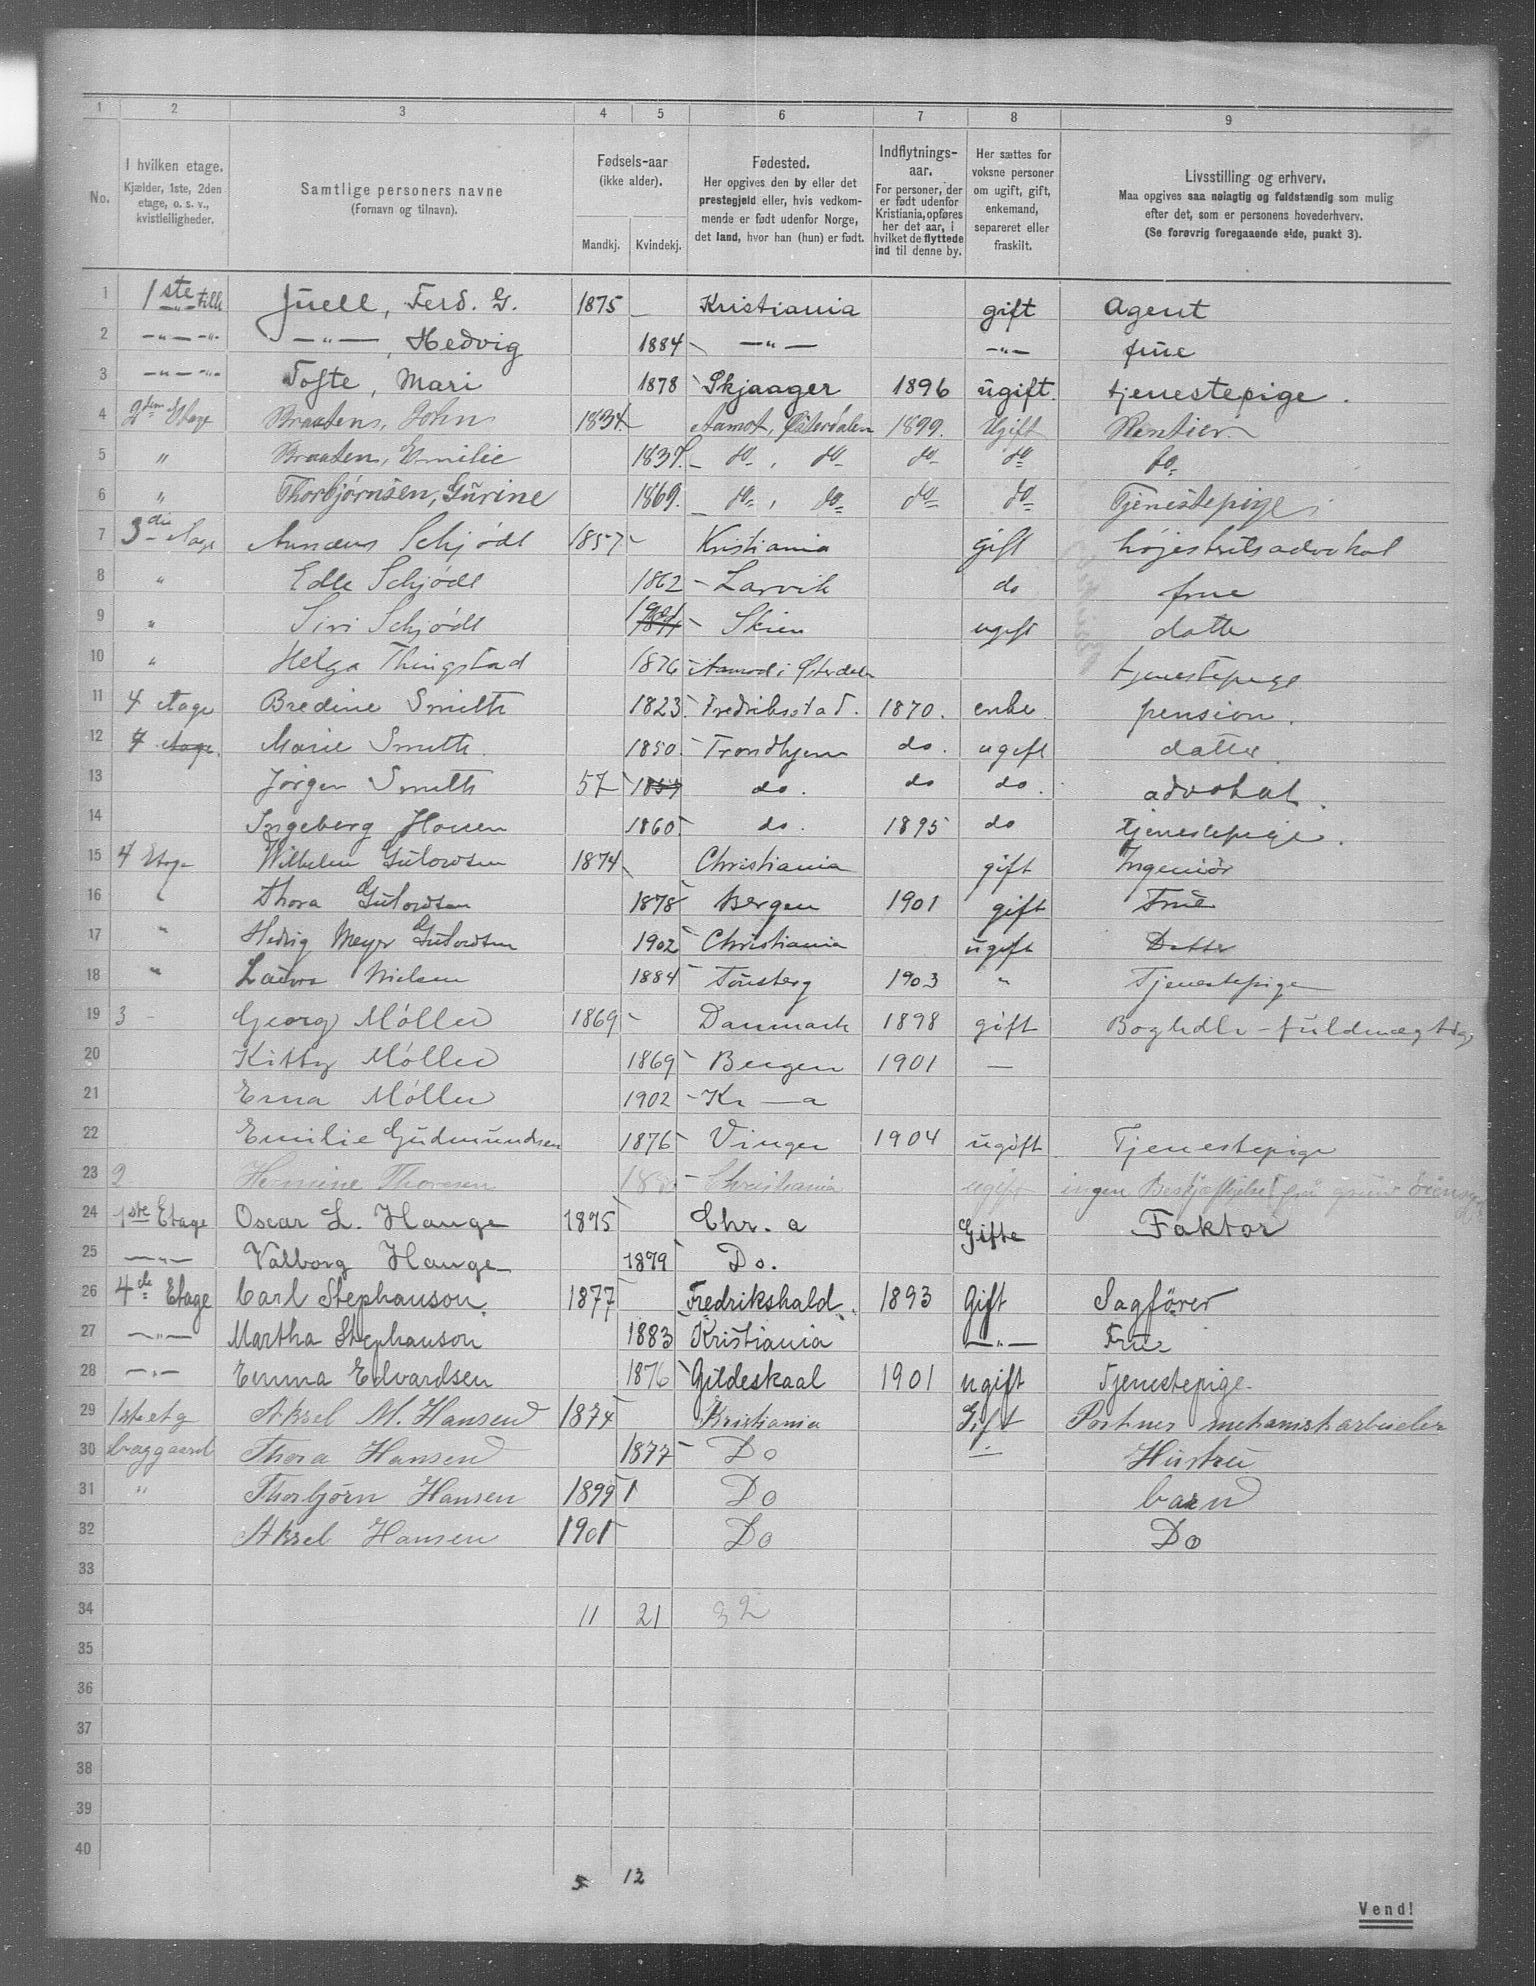 1 2 3 4 5 6 7 8 9
No.
I hvilken etage.
Kjælder, 1ste, 2den
etage, o. s. v.,
kvistleiligheder.
Samtlige personers navne
(Fornavn og tilnavn).
Fødsels-aar
(ikke alder).
Mandkj. Kvindekj.
Fødested.
Her opgives den by eller det
prestegjeld eller, hvis vedkom-
mende er født udenfor Norge,
det land, hvor han (hun) er født.
Indflytnings-
aar.
For personer, der
er født udenfor
Kristiania, opføres
her det aar, i
hvilket de flyttede
ind til denne by.
Her sættes for
voksne personer
om ugift, gift,
enkemand,
separeret eller
fraskilt.
Livsstilling og erhverv.
Maa opgives saa nøiagtig og fuldstændig som mulig
efter det, som er personens hovederhverv.
(Se forøvrig foregaaende side, punkt 3).
1 1ste Juell, Ferd. G. 1875 Kristiania gift Agent
2 — " — — " —, Hedvig 1884 — " — — " — frue
3 — " — Tofte, Mari 1878 Skjaager 1896 ugift. tjenestepige.
4 2den Etage Braaten, John 1834. Aamot, Østerdalen 1899. Ugift Rentier.
5 " Braaten, Emilie 1837. do, do do do do
6 " Thorbjørnsen, Gurine 1869. do, do do do Tjenestepige
7 3die Etage Annæus Schjødt 1857 Kristiania gift højestretsadvokat
8 " Edle Schjødt 1862 Larvik do frue
9 " Siri Schjødt Skien ugift datter
10 " Helga Thingstad 1876 Aamod i Østerdalen tjenestepige
11 4 etage Bredine Smith 1823. Fredriksstad. 1870. enke pension.
12 4 etage. Marie Smith. 1850. Trondhjem do. ugift datter.
13 Jørgen Smith 57 do. do do. advokat.
14 Ingeborg Houen 1860 do. 1895 do tjenestepige.
15 4 Etage Wilhelm Gulowsen 1874 Christiania gift Ingeniör
16 " Thora Gulowsen 1878 Bergen 1901 gift Frue
17 " Hedvig Meyer Gulowsen 1902 Christiania ugift Datter
18 " Laura Nielsen 1884 Tønsberg 1903 " Tjenestepige
19 3 Georg Møller 1869 Danmark 1898 gift Boghdlr-fuldmægtig
20 Kitty Møller 1869 Bergen 1901 —
21 Erna Møller 1902 Kr—a
22 Emilie Gudmundsen 1876 Vinger 1904 ugift Tjenestepige
23 2 Hermine Thoresen Christiania ugift ingen Beskjæftigelse
24 1ste Etage Oscar L. Hauge 1875 Chr. a Gifte Faktor
25 — " — Valborg Hauge 1879 Do.
26 4de Etage Carl Stephanson. 1877 Fredrikshald. 1893 Gift Sagfører
27 — " — Martha Stephanson 1883 Kristiania — " — Frue
28 — " — Emma Edvardsen 1876 Gildeskaal 1901 ugift Tjenestepige.
29 1ste etg Aksel M. Hansen 1874 Kristiania Gift Portner mekanisk arbeider
30 baggaard Thora Hansen 1877 Do — Hustru
31 " Thorbjørn Hansen 1899 Do barn
32 Aksel Hansen 1901 Do Do
33
34 11 21 32
35
36
37
38
39
40
5 12
Vend!